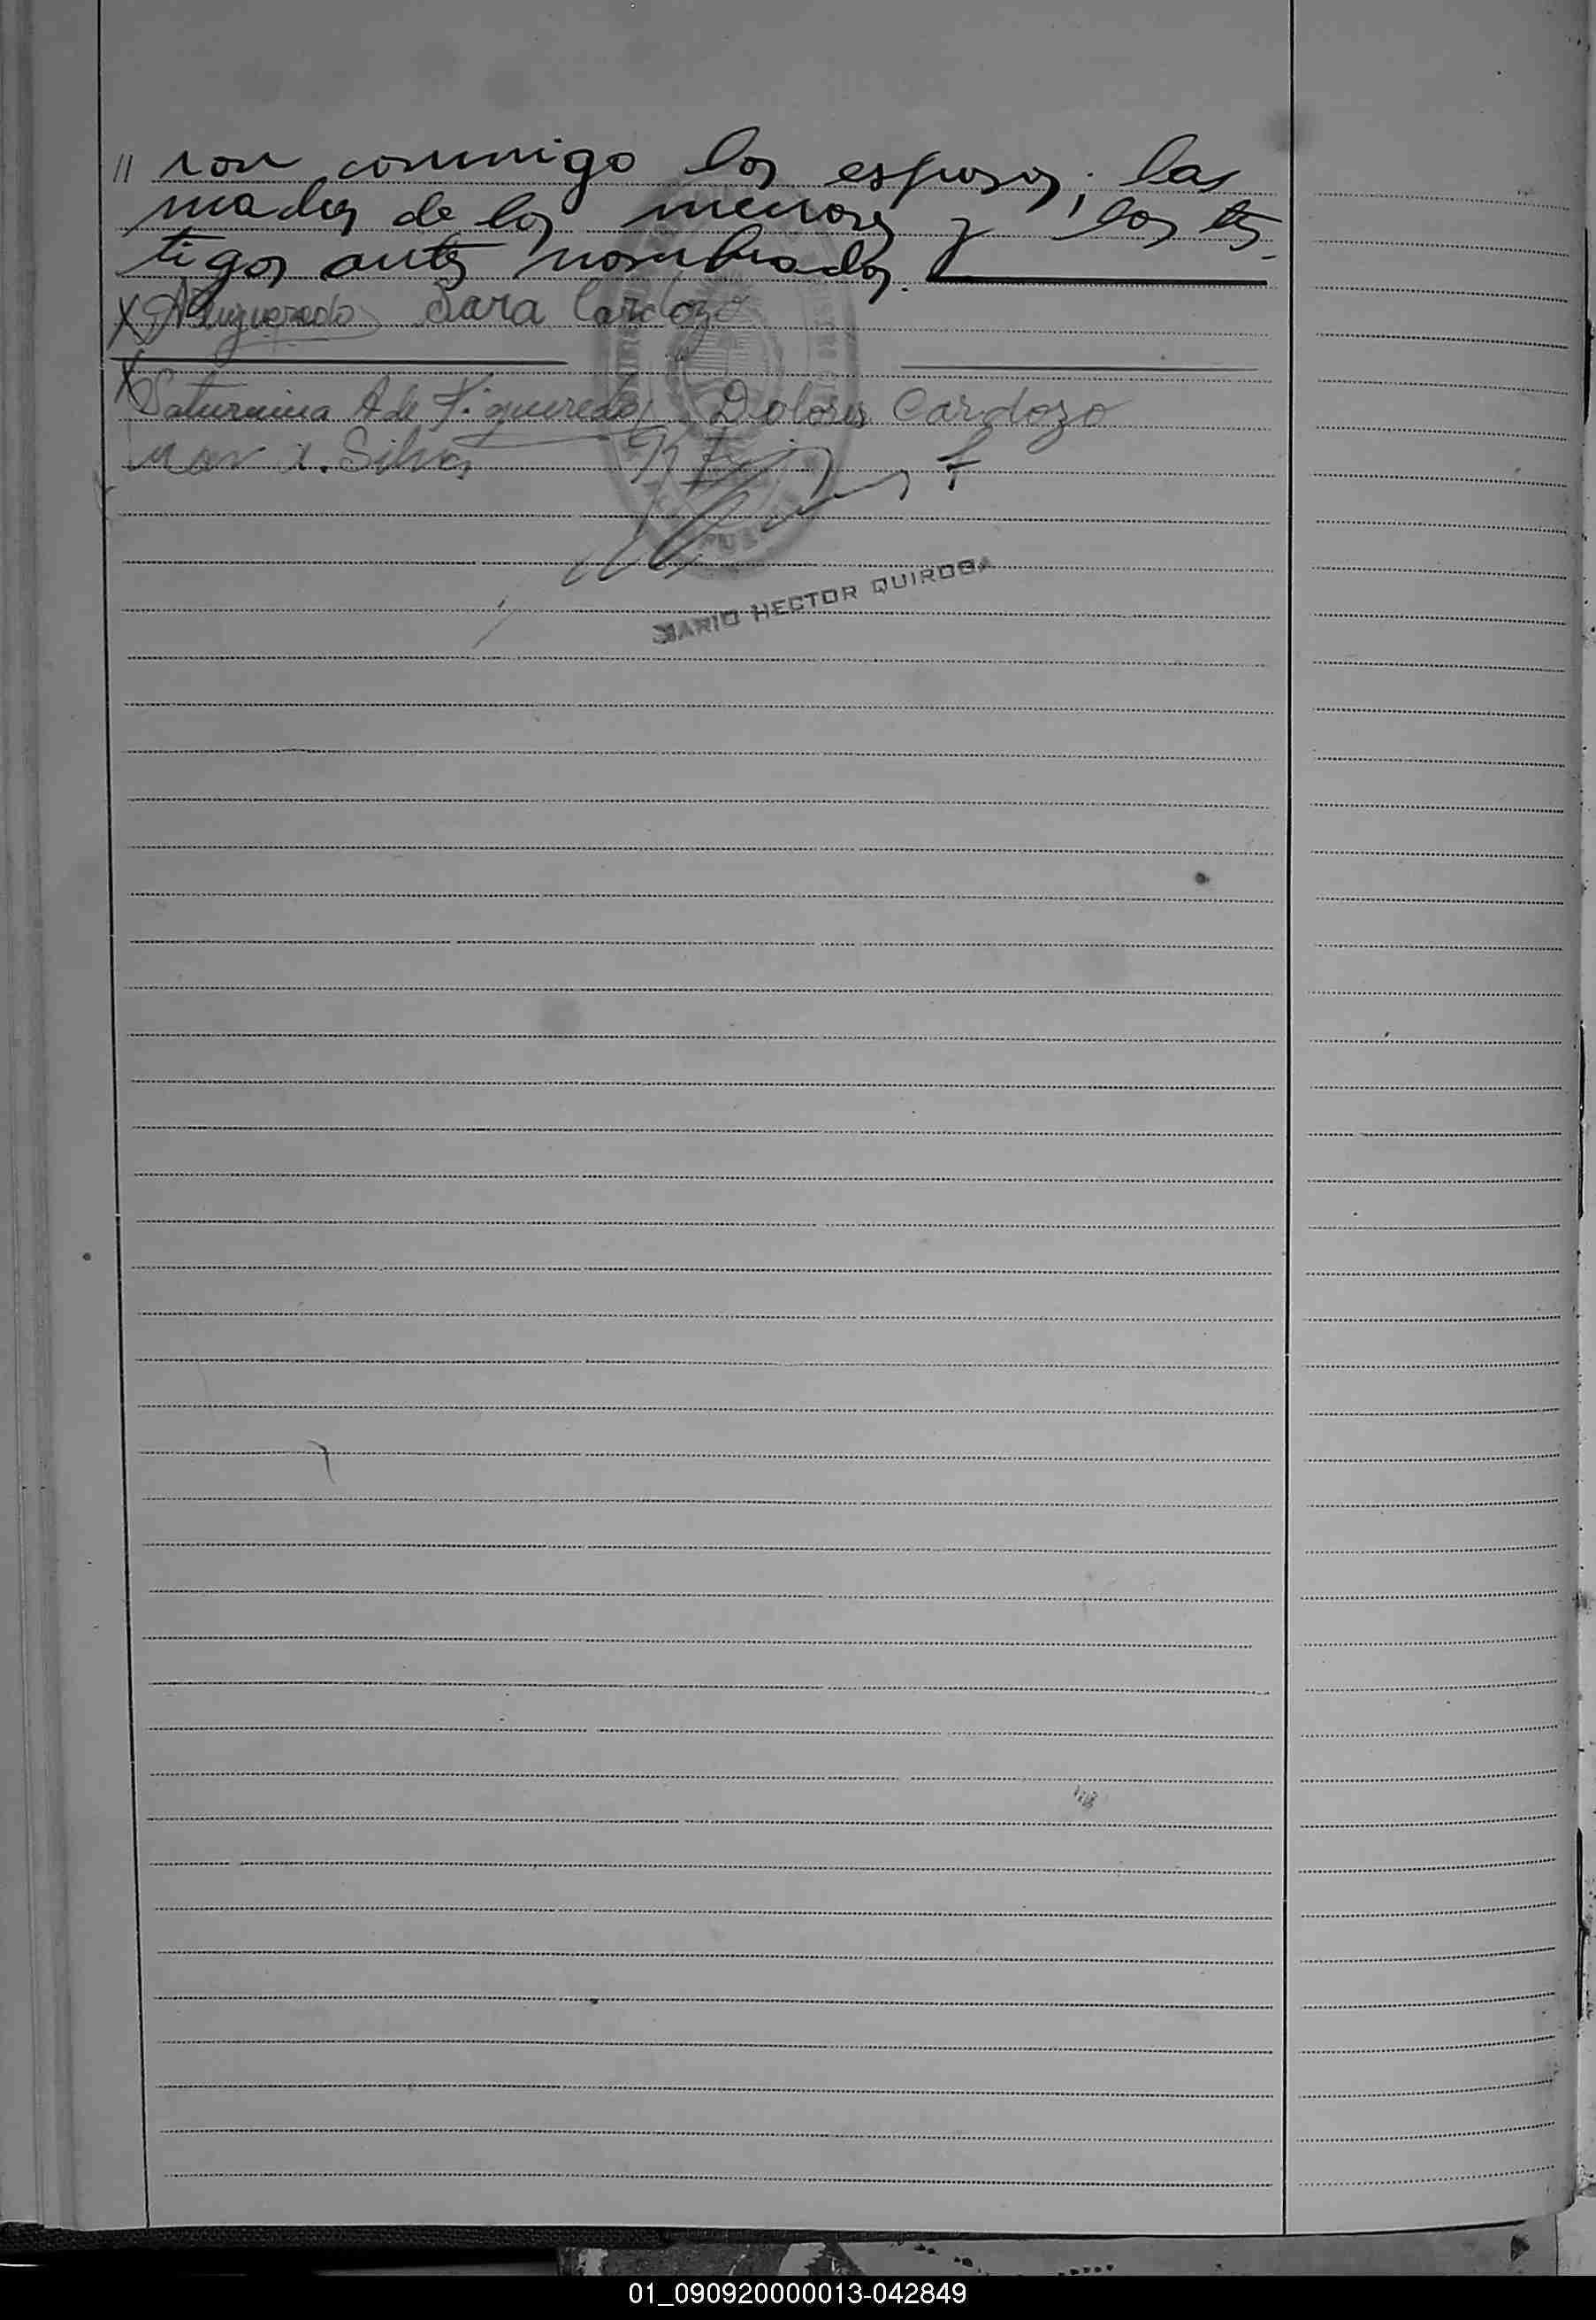 " ron conmigo los esposos, las
madres de los menores y los tes-
tigos antes nombrados.
x A Figueredo Sara Cardozo
x Saturnina A de Figueredo Dolores Cardozo
Silva
MARIO HECTOR QUIROGA
01_090920000013-042849